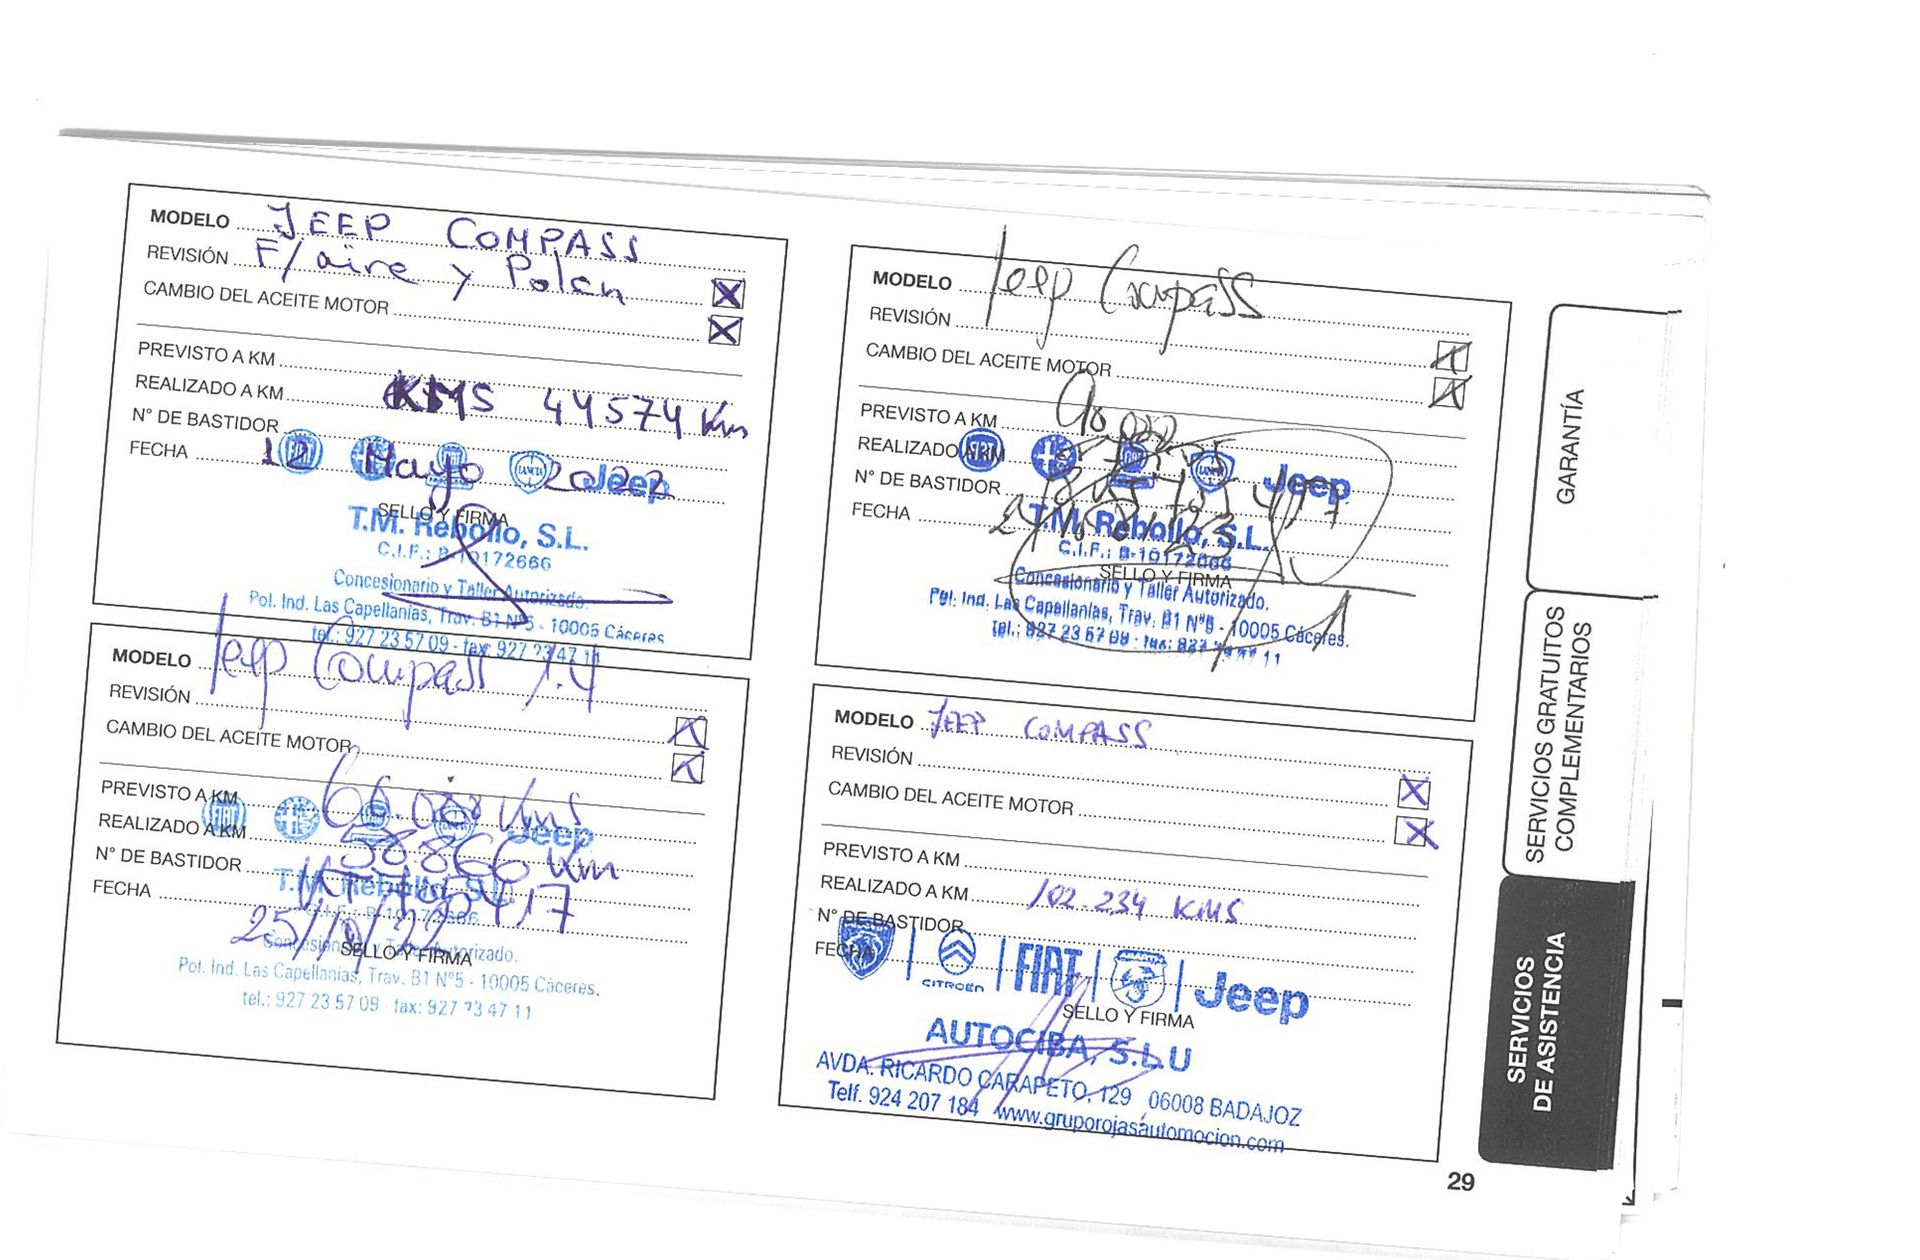 MODELO JEEP COMPASS
REVISIÓN F/aire y Polen
CAMBIO DEL ACEITE MOTOR
PREVISTO A KM
REALIZADO A KM KMS 44574 Km
N° DE BASTIDOR
FECHA 12 Mayo 2022
FIAT LANCIA Jeep
SELLO Y FIRMA
T.M. Rebollo, S.L.
C.I.F.: B-10172666
Concesionario y Taller Autorizado.
Pol. Ind. Las Capellanías, Trav. B1 Nº5 - 10005 Cáceres
tel.: 927 23 57 09 - fax: 927 23 47 11
MODELO Jeep Compass 1.4
REVISIÓN
CAMBIO DEL ACEITE MOTOR
PREVISTO A KM 60.000 Kms
FIAT Jeep
REALIZADO A KM 58.866 Km
N° DE BASTIDOR
FECHA 25/10/22
T.M. Rebollo, S.L.
C.I.F.: B-10172666
Concesionario y Taller Autorizado.
SELLO Y FIRMA
Pol. Ind. Las Capellanías, Trav. B1 Nº5 - 10005 Cáceres.
tel.: 927 23 57 09 - fax: 927 23 47 11
MODELO Jeep Compass
REVISIÓN
CAMBIO DEL ACEITE MOTOR
PREVISTO A KM
REALIZADO A KM
FIAT LANCIA Jeep
N° DE BASTIDOR
FECHA
T.M. Rebollo, S.L.
C.I.F.: B-10172666
SELLO Y FIRMA
Concesionario y Taller Autorizado.
Pol. Ind. Las Capellanías, Trav. B1 Nº5 - 10005 Cáceres.
tel.: 927 23 57 09 - fax: 927 23 47 11
MODELO JEEP COMPASS
REVISIÓN
CAMBIO DEL ACEITE MOTOR
PREVISTO A KM
REALIZADO A KM 102.234 KMS
N° DE BASTIDOR
FECHA
CITROËN FIAT Jeep
SELLO Y FIRMA
AUTOCIBA, S.L.U
AVDA. RICARDO CARAPETO, 129 06008 BADAJOZ
Telf. 924 207 184 www.gruporojasautomocion.com
GARANTÍA
SERVICIOS GRATUITOS
COMPLEMENTARIOS
SERVICIOS
DE ASISTENCIA
29